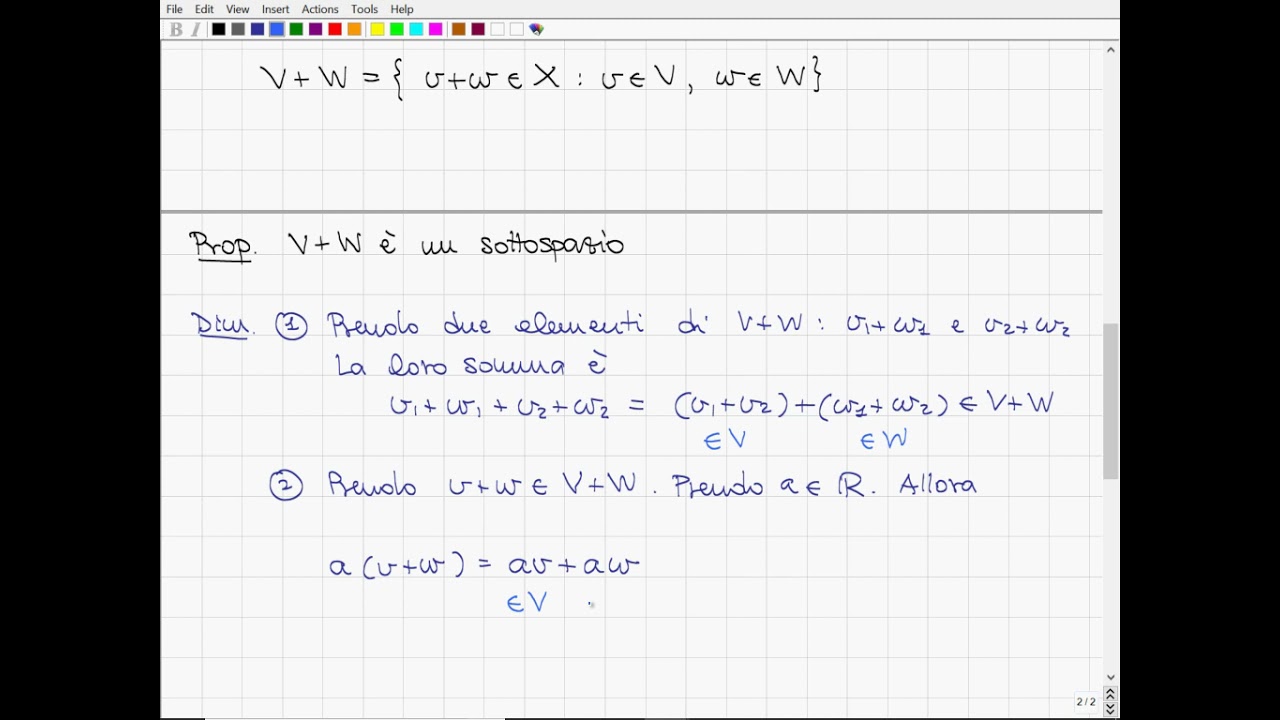 File Edit View Insert Actions Tools Help
B I
V+W = { v+w ∈ X : v ∈ V, w ∈ W}
Prop. V+W è un sottospazio
Dim. ① Prendo due elementi di V+W : v₁+w₁ e v₂+w₂
La loro somma è
v₁+w₁+v₂+w₂ = (v₁+v₂)+(w₁+w₂) ∈ V+W
∈V ∈W
② Prendo v+w ∈ V+W. Prendo a ∈ ℝ. Allora
a(v+w) = av+aw
∈V
2 / 2